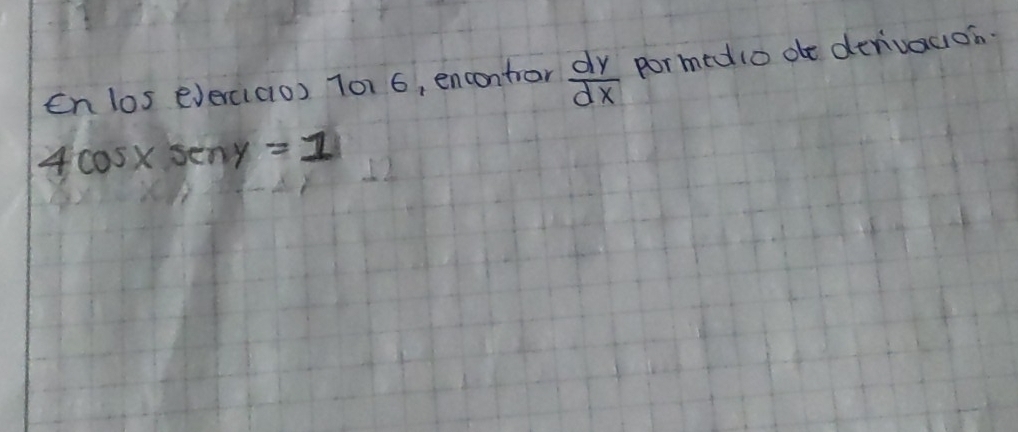 En los ejercicios 1 al 6, encontrar dy/dx por medio de derivación.
4 cos x sen y = 1